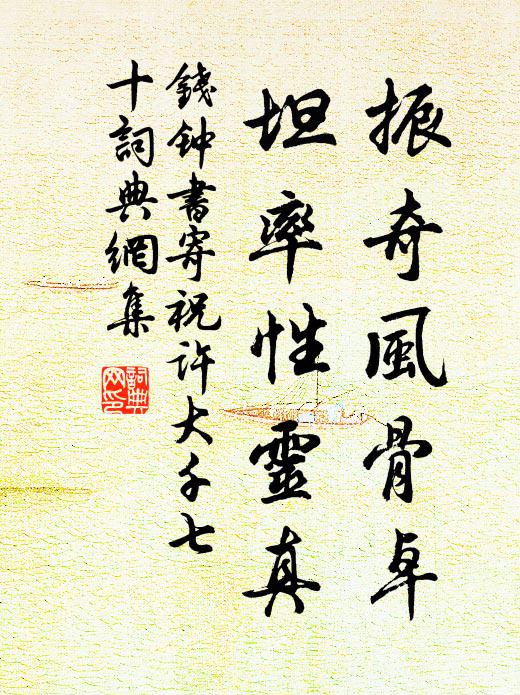 振奇風骨卓
坦率性靈真
錢鐘書寄祝许大千七
十詞典網集
詞典
网印